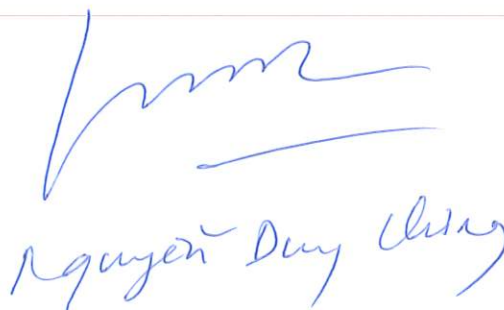 Nguyễn Duy Chinh